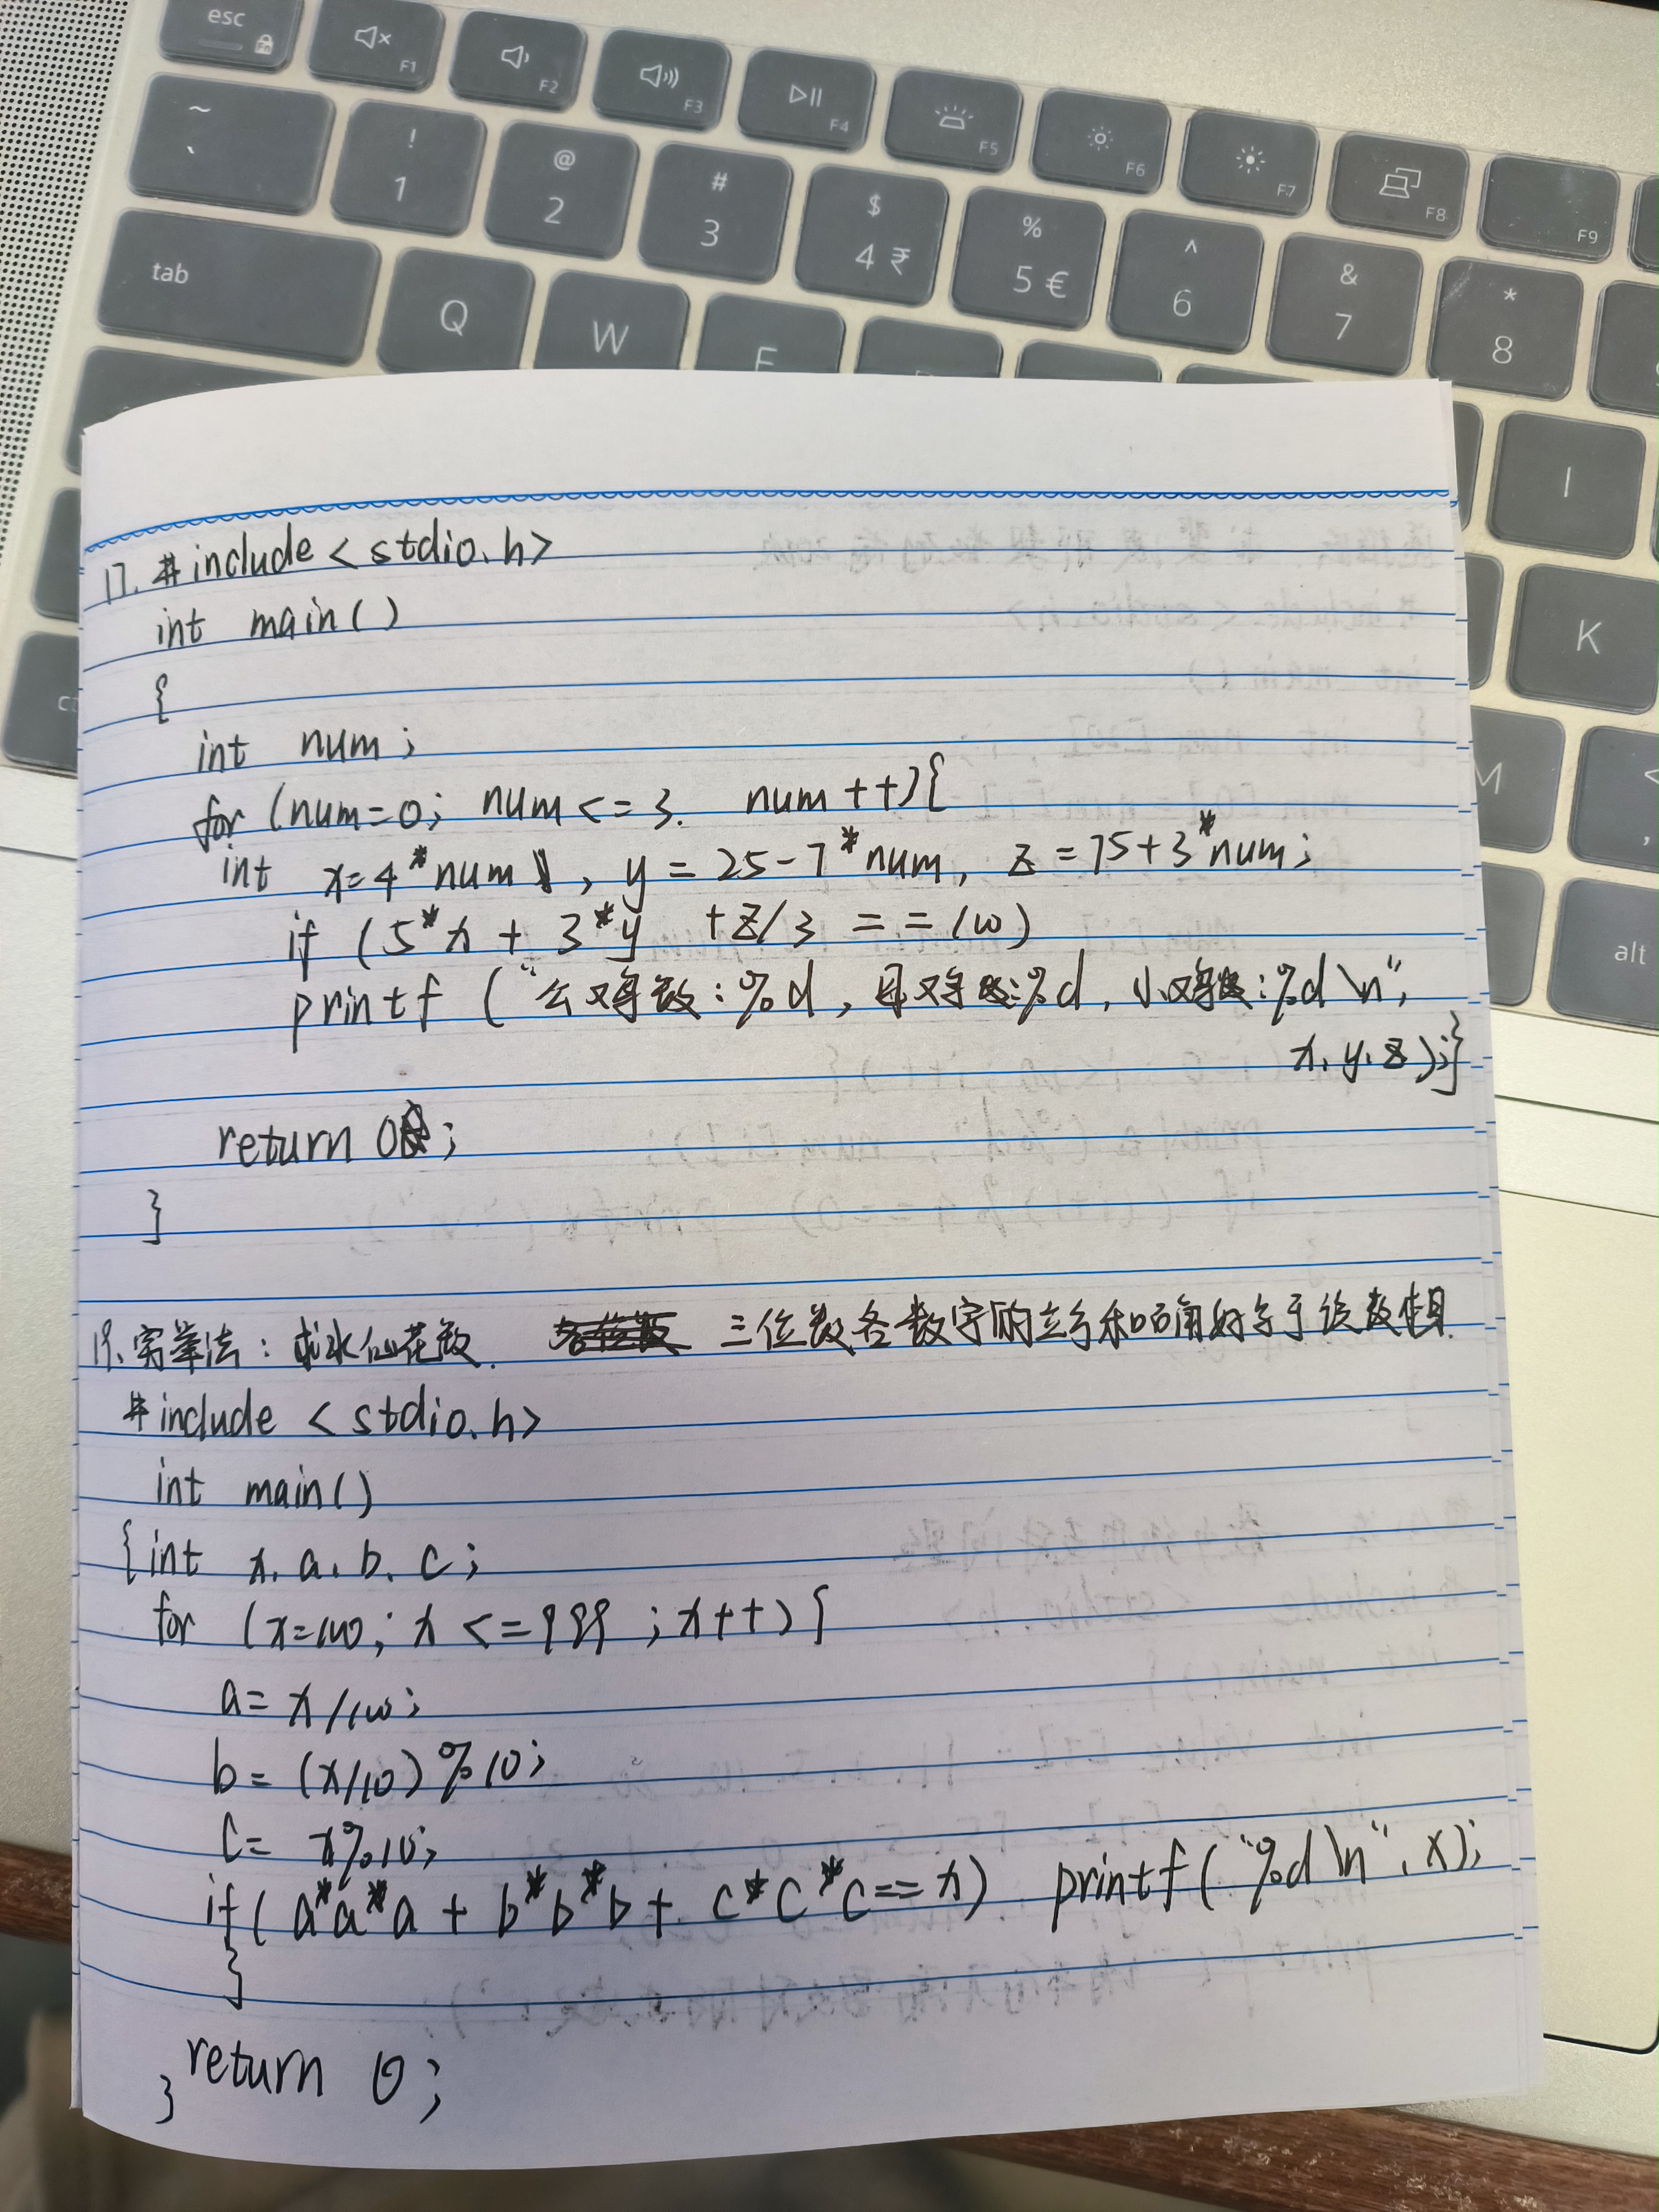 esc
F1
F2
F3
F4
F5
F6
F7
F8
F9
~ `
! 1
@ 2
# 3
$ 4 ₹
% 5 €
^ 6
& 7
* 8
tab
Q
W
I
K
M
<
,
alt
17. #include <stdio.h>
int main()
{
int num;
for (num=0; num<=3. num++){
int x=4*num, y=25-7*num, z=75+3*num;
if (5*x + 3*y +z/3 ==100)
printf ("公鸡数:%d,母鸡数:%d,小鸡数:%d\n",
x,y,z);}
return 0;
}
19.穷举法:求水仙花数. 三位数各数字的立方和恰好等于该数本身.
#include <stdio.h>
int main()
{int x, a, b, c;
for (x=100; x<=999; x++){
a= x/100;
b= (x/10)%10;
c= x%10;
if(a*a*a + b*b*b + c*c*c==x) printf("%d\n", x);
}
return 0;
}